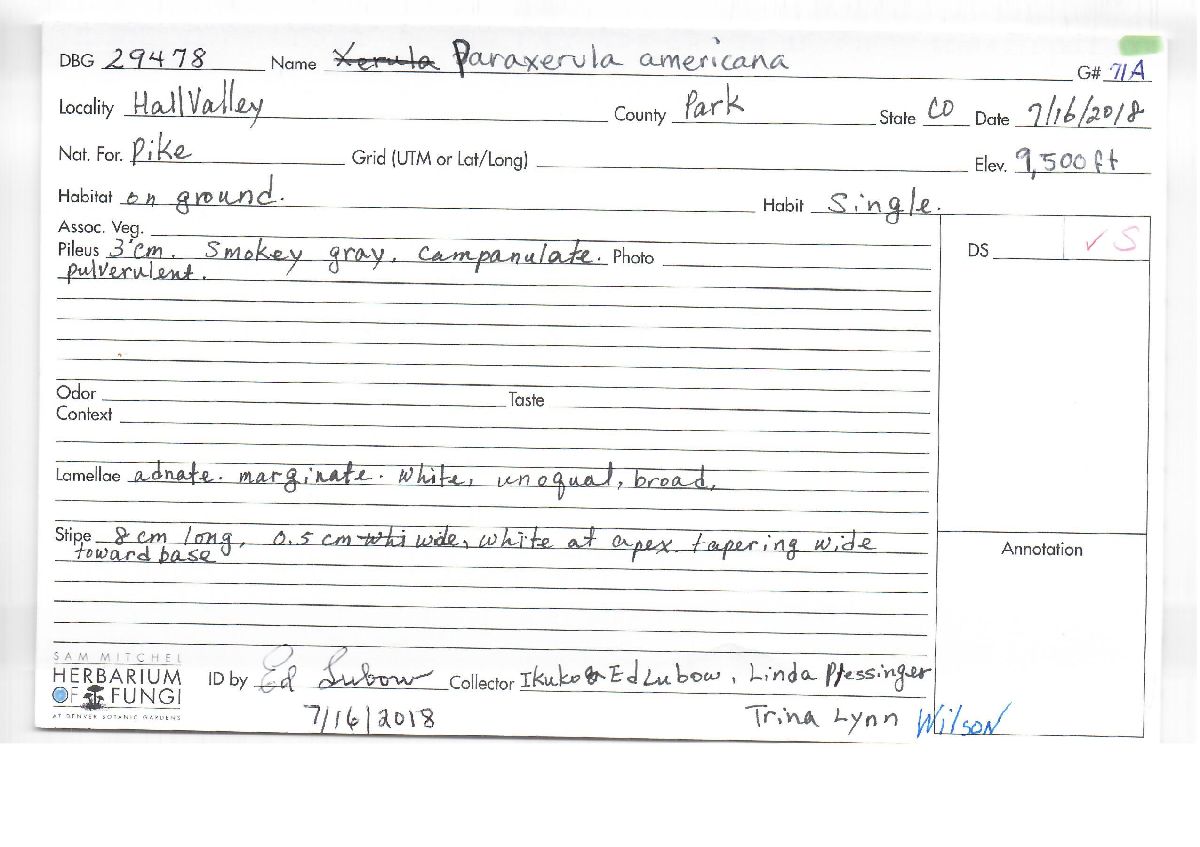 DBG 29478 Name Xerula Paraxerula americana G# 71A
Locality Hall Valley County Park State CO Date 7/16/2018
Nat. For. Pike Grid (UTM or Lat/Long) Elev. 9,500 ft
Habitat on ground. Habit Single.
Assoc. Veg.
Pileus 3 cm. Smokey gray. Campanulate. Photo DS ✓ S
pulverulent.
Odor Taste
Context
Lamellae adnate. marginate. white, unequal, broad,
Stipe 8 cm long, 0.5 cm whi wide, white at apex tapering wide
toward base
Annotation
SAM MITCHEL
HERBARIUM
OF FUNGI
AT DENVER BOTANIC GARDENS
ID by Ed Lubow Collector Ikuko & Ed Lubow, Linda Pfessinger
7/16/2018 Trina Lynn Wilson